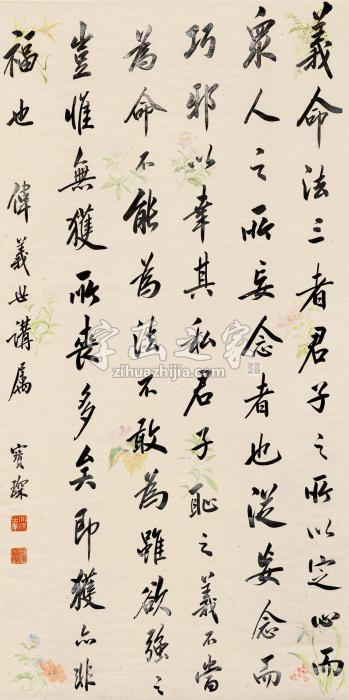 義命法三者君子之所以定心而
衆人之所妄念者也從妄念而
巧邪以幸其私君子恥之義不當
為命不能為法不敢為雖欲強之
豈惟無獲所喪多矣即獲亦非
福也
偉義世講屬
寶琛
字画之家
zihuazhijia.com